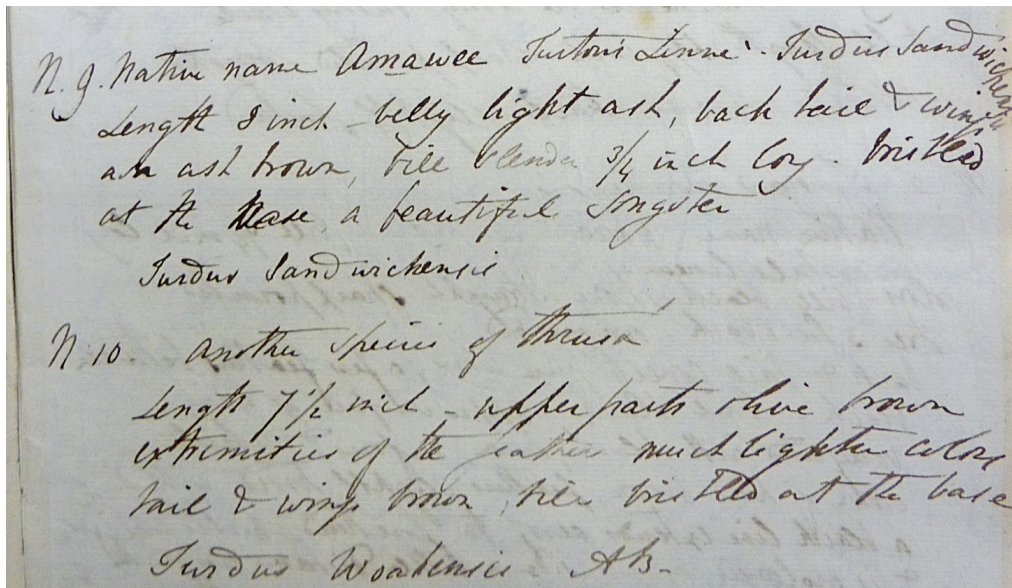 N. 9. Native name Amawee Turton's Linne'. Turdus Sandwichensis
Length 8 inch - belly light ash, back tail & wings
an ash brown, bill slender 3/4 inch long. bristled
at the base a beautiful Songster
Turdus Sandwichensis
N 10 Another Species of thrush
Length 7 1/2 inch - upper parts olive brown
extremities of the feathers much lighter color
tail & wings brown, bill bristled at the base
Turdus Woahensis AB.